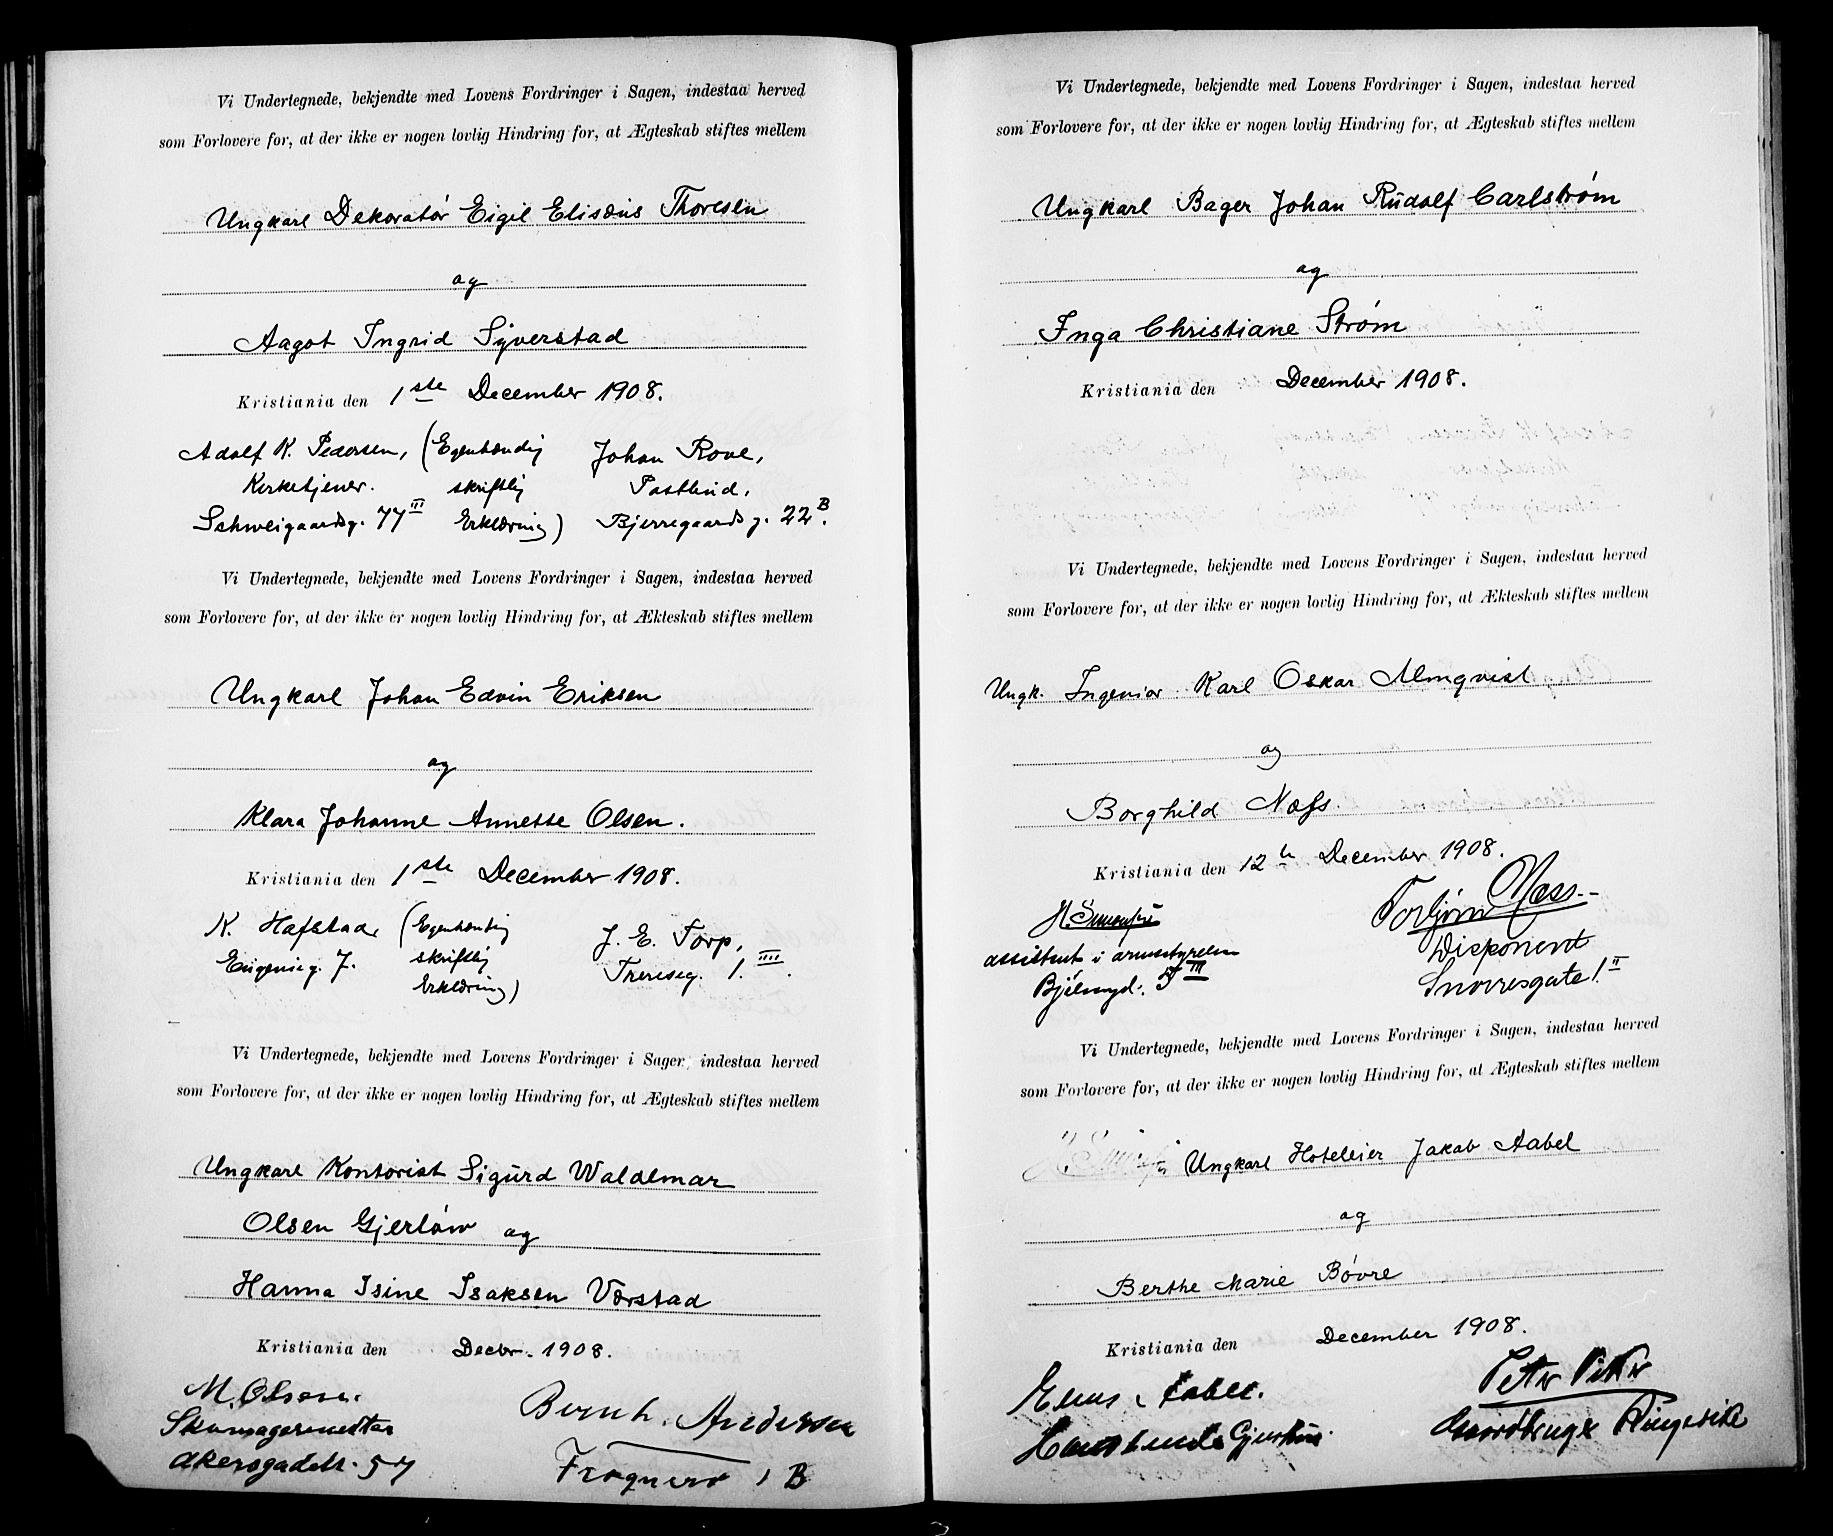 Vi Undertegnede, bekjendte med Lovens Fordringer i Sagen, indestaa herved
som Forlovere for, at der ikke er nogen lovlig Hindring for, at Ægteskab stiftes mellem
Ungkarl Dekoratør Eigil Elisæus Thoresen
og
Aagot Ingrid Syverstad
Kristiania den 1ste December 1908.
Adolf K. Pedersen, (Egenhændig Johan Rove,
Kirketjener. skriftlig Postbud,
Schweigaardsg. 77 III Erklæring) Bjerregaardsg. 22 B.
Vi Undertegnede, bekjendte med Lovens Fordringer i Sagen, indestaa herved
som Forlovere for, at der ikke er nogen lovlig Hindring for, at Ækteskab stiftes mellem
Ungkarl Johan Edvin Eriksen
og
Klara Johanne Annette Olsen.
Kristiania den 1ste December 1908.
K. Hafstad, (Egenhændig J. E. Torp,
Eugenieg. 7. skriftlig Thereseg. 1. IIII.
Erklæring)
Vi Undertegnede, bekjendte med Lovens Fordringer i Sagen, indestaa herved
som Forlovere for, at der ikke er nogen lovlig Hindring for, at Ægteskab stiftes mellem
Ungkarl Kontorist Sigurd Waldemar
Olsen Gjerløw og
Hanna Isine Isaksen Værstad
Kristiania den Decbr. 1908.
M. Olsen. Bernh. Andersen
Skomagermester
Akersgaden 57 Frognerv 1 B
Vi Undertegnede, bekjendte med Lovens Fordringer i Sagen, indestaa herved
som Forlovere for, at der ikke er nogen lovlig Hindring for, at Ægteskab stiftes mellem
Ungkarl Bager Johan Rudolf Carlstrøm
og
Inga Christiane Strøm
Kristiania den December 1908.
Vi Undertegnede, bekjendte med Lovens Fordringer i Sagen, indestaa herved
som Forlovere for, at der ikke er nogen lovlig Hindring for, at Ækteskab stiftes mellem
Ungk. Ingeniør Karl Oskar Almqvist
og
Borghild Næss.
Kristiania den 12te December 1908.
Torbjørn Næss.
assistent i Disponent
5 III Snorresgate 1. II
Vi Undertegnede, bekjendte med Lovens Fordringer i Sagen, indestaa herved
som Forlovere for, at der ikke er nogen lovlig Hindring for, at Ægteskab stiftes mellem
Ungkarl Hoteleier Jakob Aabel
og
Berthe Marie Bøvre
Kristiania den December 1908.
Aabel. Petter
Gaardbruger Ringerike